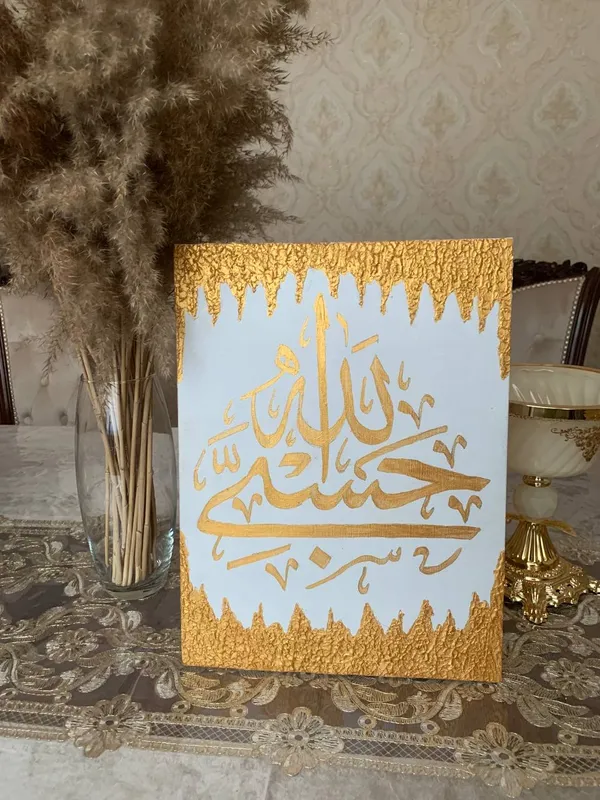 حَسْبِيَ اللّٰهُ